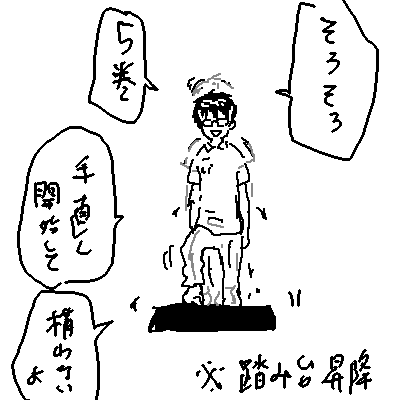 そろそろ
5巻を
手直し
開始して
構わない
よ
※踏み台昇降